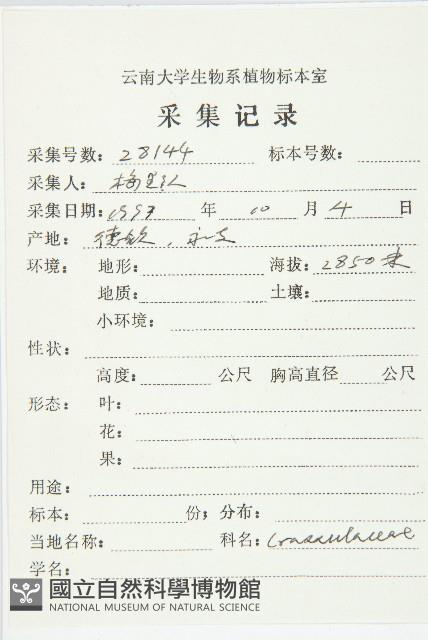 云南大学生物系植物标本室
采集记录
采集号数: 28144 标本号数:
采集人: 梅里队
采集日期: 1997 年 10 月 4 日
产地: 德钦,
环境: 地形: 海拔: 2850米
地质: 土壤:
小环境:
性状:
高度: 公尺 胸高直径 公尺
形态: 叶:
花:
果:
用途:
标本: 份; 分布:
当地名称: 科名: Crassulaceae
学名:
國立自然科學博物館
NATIONAL MUSEUM OF NATURAL SCIENCE